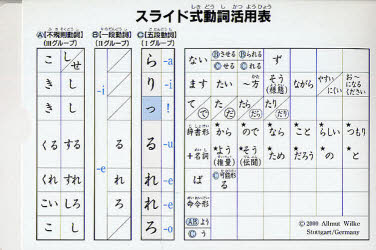 スライド式動詞活用表
しき どうし かつ ようひょう
Ⓐ[不規則動詞] Ⓑ[一段動詞] Ⓒ[五段動詞]
(Ⅲグループ) (Ⅱグループ) (Ⅰグループ)
こ し せ ら -a ない Ⓑさせる Ⓒせる Ⓑられる Ⓒれる ず
き し -i り -i ます たい ～方 そう (様態) ながら やすい にくい お～になる ください
き し っ ! て で た だ たら だら たり だり
くる する る る -u 辞書形 ★から ★ので ★なら ★こと ★らしい ★つもり
+名詞 よう (推量) ★そう (伝聞) ★ため ★だろう ★の ★と
くれ すれ -e れ れ -e ば Ⓒ可能形 る
こい しろ ろ れ -e 命令形
こ し ろ -o ⒶⒷよう Ⓒう
© 2000 Allmut Wilke
Stuttgart/Germany